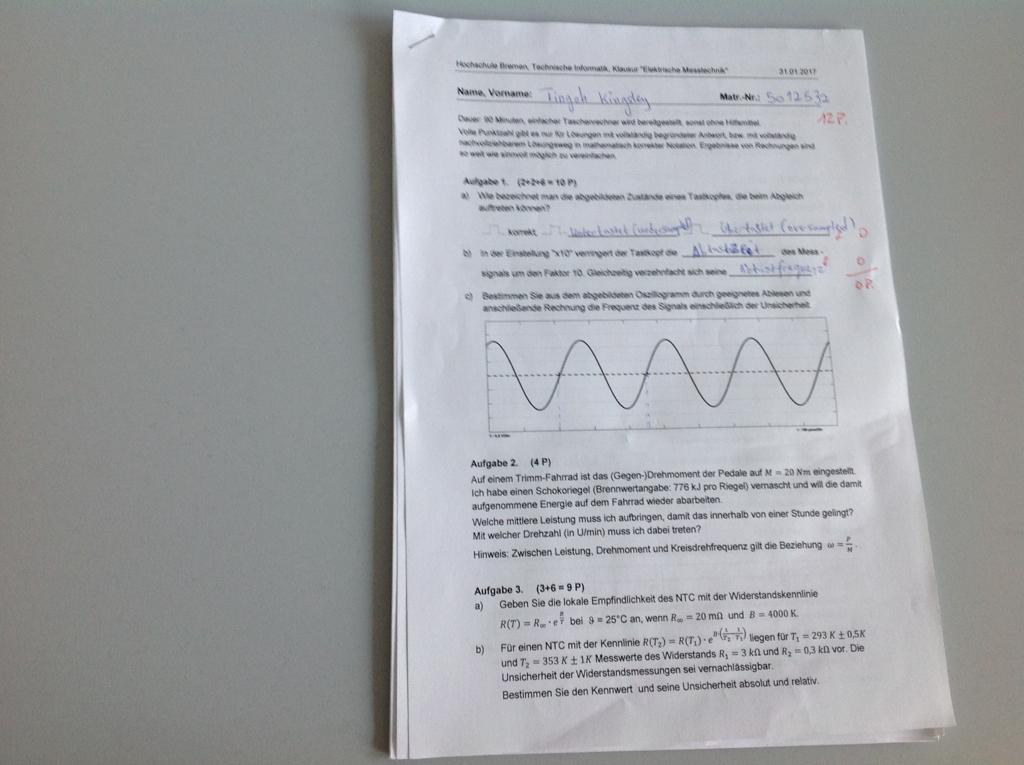 Hochschule Bremen, Technische Informatik, Klausur "Elektrische Messtechnik" 31.01.2017
Name, Vorname: Tingeh Kingsley Matr.-Nr.: 5012532
12 P.
Dauer: 90 Minuten, einfacher Taschenrechner wird bereitgestellt, sonst ohne Hilfsmittel.
Volle Punktzahl gibt es nur für Lösungen mit vollständig begründeter Antwort, bzw. mit vollständig
nachvollziehbarem Lösungsweg in mathematisch korrekter Notation. Ergebnisse von Rechnungen sind
so weit wie sinnvoll möglich zu vereinfachen.
Aufgabe 1. (2+2+6 = 10 P)
a) Wie bezeichnet man die abgebildeten Zustände eines Tastkopfes, die beim Abgleich
auftreten können?
korrekt, Untertastet (undersampled) Übertastet (oversampled) 0
b) In der Einstellung "x10" verringert der Tastkopf die des Mess-
signals um den Faktor 10. Gleichzeitig verzehnfacht sich seine Abtastfrequenz
0
0 P.
c) Bestimmen Sie aus dem abgebildeten Oszillogramm durch geeignetes Ablesen und
anschließende Rechnung die Frequenz des Signals einschließlich der Unsicherheit.
Aufgabe 2. (4 P)
Auf einem Trimm-Fahrrad ist das (Gegen-)Drehmoment der Pedale auf M = 20 Nm eingestellt.
Ich habe einen Schokoriegel (Brennwertangabe: 776 kJ pro Riegel) vernascht und will die damit
aufgenommene Energie auf dem Fahrrad wieder abarbeiten.
Welche mittlere Leistung muss ich aufbringen, damit das innerhalb von einer Stunde gelingt?
Mit welcher Drehzahl (in U/min) muss ich dabei treten?
Hinweis: Zwischen Leistung, Drehmoment und Kreisdrehfrequenz gilt die Beziehung ω = P/M .
Aufgabe 3. (3+6 = 9 P)
a) Geben Sie die lokale Empfindlichkeit des NTC mit der Widerstandskennlinie
R(T) = R∞ · e^(B/T) bei ϑ = 25°C an, wenn R∞ = 20 mΩ und B = 4000 K.
b) Für einen NTC mit der Kennlinie R(T₂) = R(T₁) · e^(B(1/T₂ − 1/T₁)) liegen für T₁ = 293 K ± 0,5K
und T₂ = 353 K ± 1K Messwerte des Widerstands R₁ = 3 kΩ und R₂ = 0,3 kΩ vor. Die
Unsicherheit der Widerstandsmessungen sei vernachlässigbar.
Bestimmen Sie den Kennwert und seine Unsicherheit absolut und relativ.